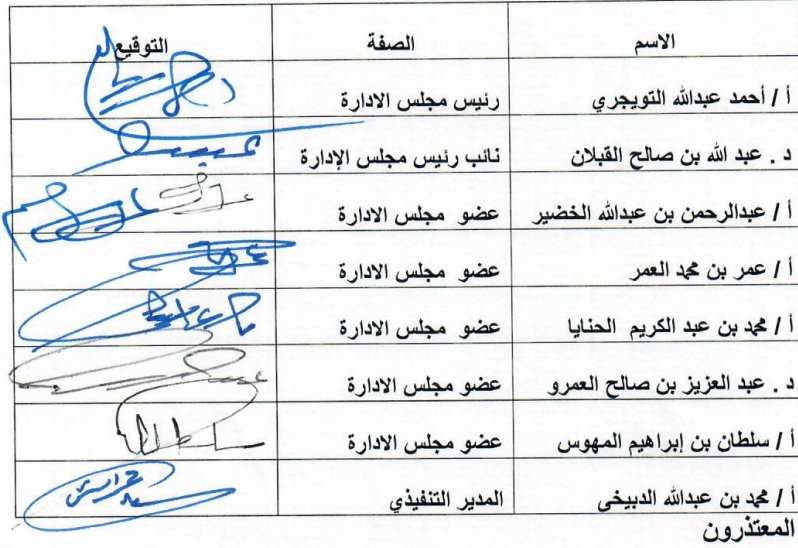 الاسم الصفة التوقيع
أ / أحمد عبدالله التويجري رئيس مجلس الادارة
د . عبد الله بن صالح القبلان نائب رئيس مجلس الإدارة
أ / عبدالرحمن بن عبدالله الخضير عضو مجلس الادارة
أ / عمر بن محمد العمر عضو مجلس الادارة
أ / محمد بن عبد الكريم الحنايا عضو مجلس الادارة
د . عبد العزيز بن صالح العمرو عضو مجلس الادارة
أ / سلطان بن إبراهيم المهوس عضو مجلس الادارة
أ / محمد بن عبدالله الدبيخى المدير التنفيذي
المعتذرون